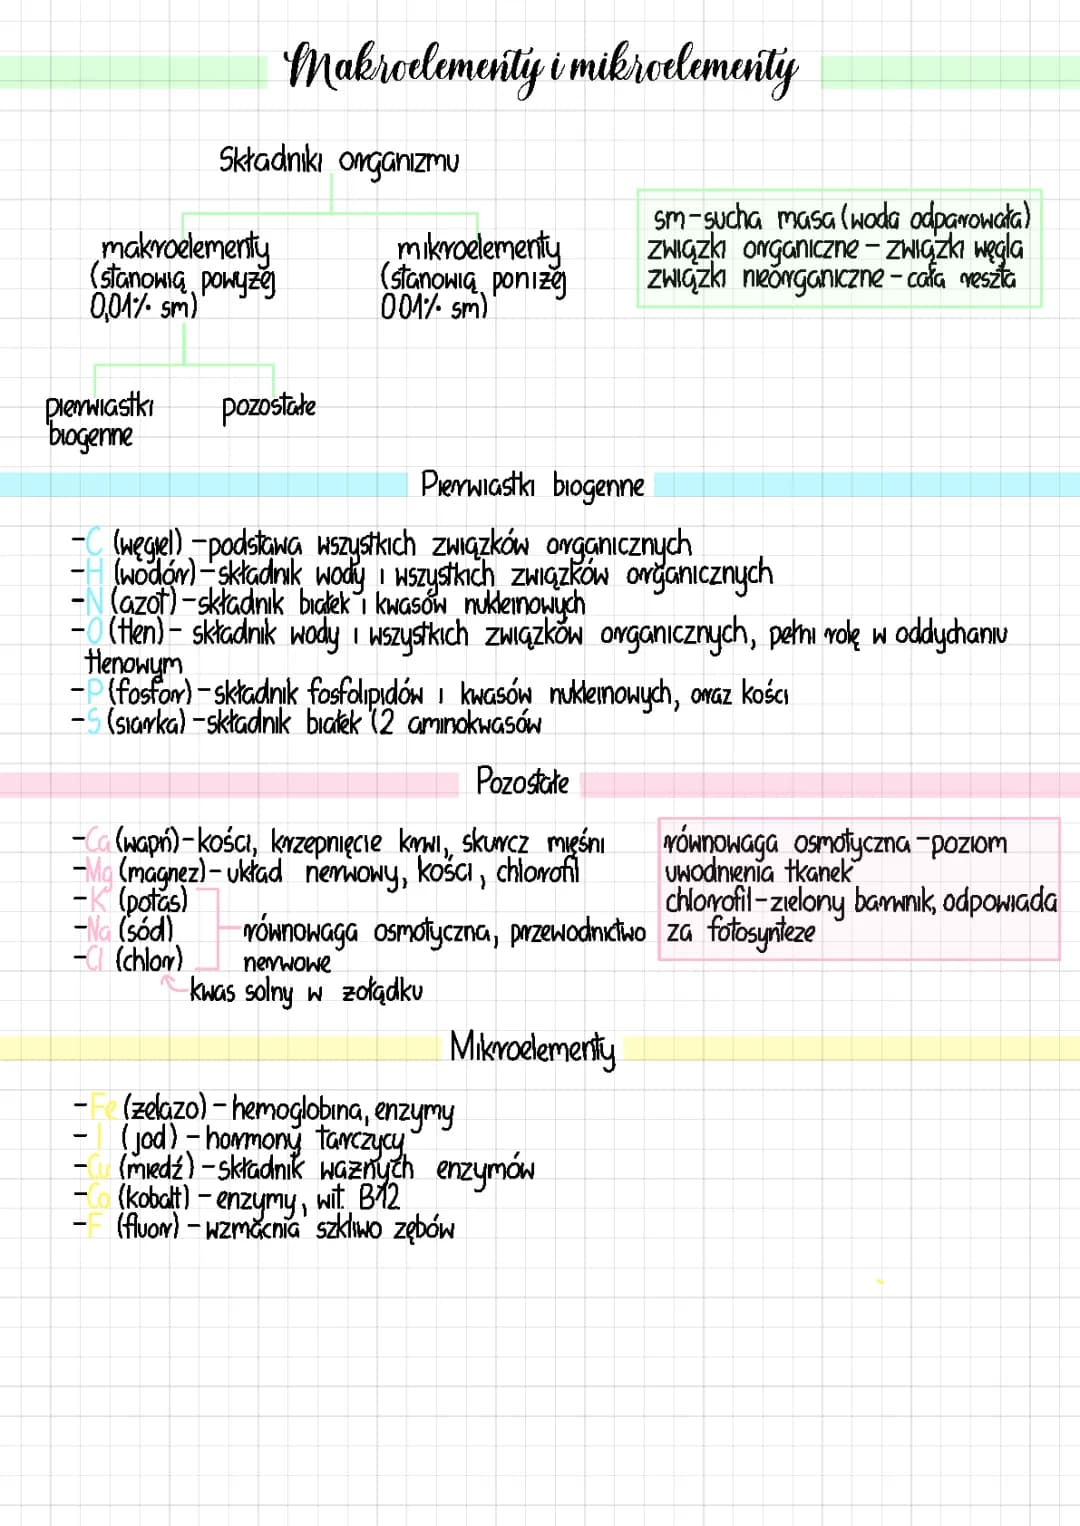 Makroelementy i mikroelementy
Składniki organizmu
makroelementy
(stanowią powyżej
0,01% sm)
mikroelementy
(stanowią poniżej
001% sm)
sm-sucha masa (woda odparowała)
związki organiczne - związki węgla
związki nieorganiczne - cała reszta
pierwiastki
biogenne
pozostałe
Pierwiastki biogenne
-C (węgiel) -podstawa wszystkich związków organicznych
-H (wodór)-składnik wody i wszystkich związków organicznych
-N (azot)-składnik białek i kwasów nukleinowych
-O (tlen)- składnik wody i wszystkich związków organicznych, pełni rolę w oddychaniu
tlenowym
-P (fosfor)-składnik fosfolipidów i kwasów nukleinowych, oraz kości
-S (siarka)-składnik białek (2 aminokwasów
Pozostałe
-Ca (wapń)-kości, krzepnięcie krwi, skurcz mięśni
-Mg (magnez)-układ nerwowy, kości, chlorofil
-K (potas)
-Na (sód)
-Cl (chlor)
równowaga osmotyczna, przewodnictwo
nerwowe
kwas solny w żołądku
równowaga osmotyczna-poziom
uwodnienia tkanek
chlorofil-zielony barwnik, odpowiada
za fotosyntezę
Mikroelementy
-Fe (żelazo)-hemoglobina, enzymy
-I (jod)-hormony tarczycy
-Cu (miedź)-składnik ważnych enzymów
-Co (kobalt)-enzymy, wit. B12
-F (fluor)-wzmacnia szkliwo zębów